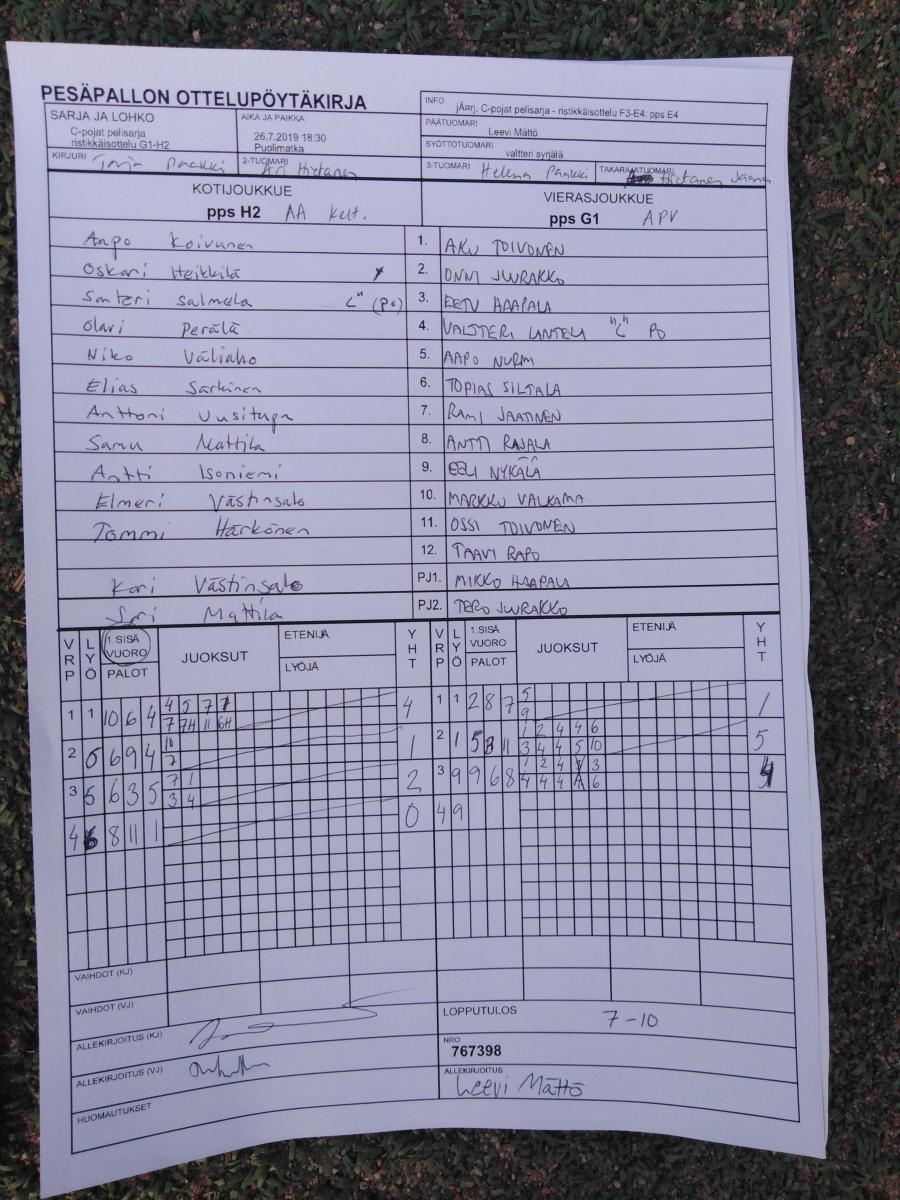 PESÄPALLON OTTELUPÖYTÄKIRJA
SARJA JA LOHKO
C-pojat pelisarja
ristikkäisottelu G1-H2
AIKA JA PAIKKA
26.7.2019 18:30
Puolimatka
INFO
jÄ¤rj, C-pojat pelisarja - ristikkäisottelu F3-E4: pps E4
PÄÄTUOMARI
Leevi Mättö
SYÖTTÖTUOMARI
valtteri syrjälä
KIRJURI Tarja Paakki
2-TUOMARI Ari Hietanen
3-TUOMARI Helena Paakki
TAKARAJATUOMARI Hietanen Jaana
KOTIJOUKKUE
pps H2 AA Kelt.
VIERASJOUKKUE
pps G1 APV
Aapo Koivunen 1. AKU TOIVONEN
Oskari Heikkilä 2. ONNI JUURAKKO
Santeri Salmela L" (Po) 3. EETU HAAPALA
Olavi Perälä 4. VALTTERI LANTELA "L" PO
Niko Väliaho 5. AAPO NURMI
Elias Särkinen 6. TOPIAS SILTALA
Anttoni Uusitupa 7. RAMI JAATINEN
Samu Mattila 8. ANTTI RAJALA
Antti Isoniemi 9. EELI NYKÄLÄ
Elmeri Västinsalo 10. MARKKU VALKAMA
Tommi Härkönen 11. OSSI TOIVONEN
12. TAAVI RAPO
Kari Västinsalo PJ1. MIKKO HAAPALA
Sari Mattila PJ2. TERO JUURAKKO
VRP LYÖ 1.SISÄ VUORO PALOT JUOKSUT ETENIJÄ LYÖJÄ YHT
VRP LYÖ 1.SISÄ VUORO PALOT JUOKSUT ETENIJÄ LYÖJÄ YHT
1 1 10 6 4 4 5 7 7 4
7 7H 11 6H
2 5 6 9 4 10 1
7
3 5 6 3 5 7 1 2
3 4
4 6 8 11 1 0
1 1 2 8 7 5 1
9
2 1 5 3 11 1 2 4 4 6 5
3 4 4 5 10
3 9 9 6 8 1 2 4 3 4
4 4 4 6
4 9
VAIHDOT (KJ)
VAIHDOT (VJ)
ALLEKIRJOITUS (KJ)
ALLEKIRJOITUS (VJ)
HUOMAUTUKSET
LOPPUTULOS 7-10
NRO
767398
ALLEKIRJOITUS
Leevi Mättö